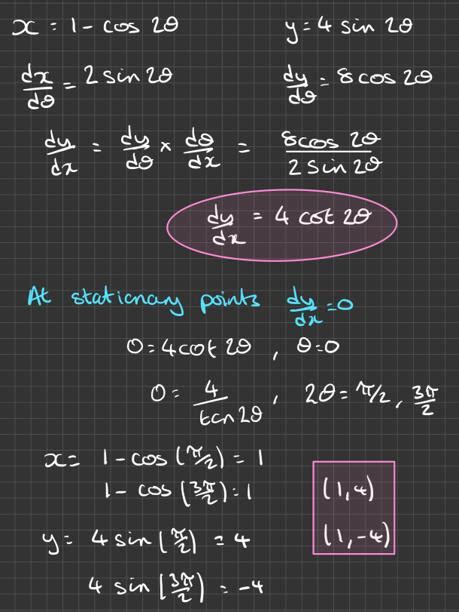 x = 1 - cos 2θ    y = 4 sin 2θ
dx/dθ = 2 sin 2θ    dy/dθ = 8 cos 2θ
dy/dx = dy/dθ × dθ/dx = 8cos 2θ / 2 sin 2θ
dy/dx = 4 cot 2θ
At stationary points dy/dx = 0
0 = 4 cot 2θ , θ = 0
0 = 4/tan 2θ , 2θ = π/2 , 3π/2
x = 1 - cos (π/2) = 1
1 - cos (3π/2) = 1
(1,4)
y = 4 sin (π/2) = 4
(1,-4)
4 sin (3π/2) = -4